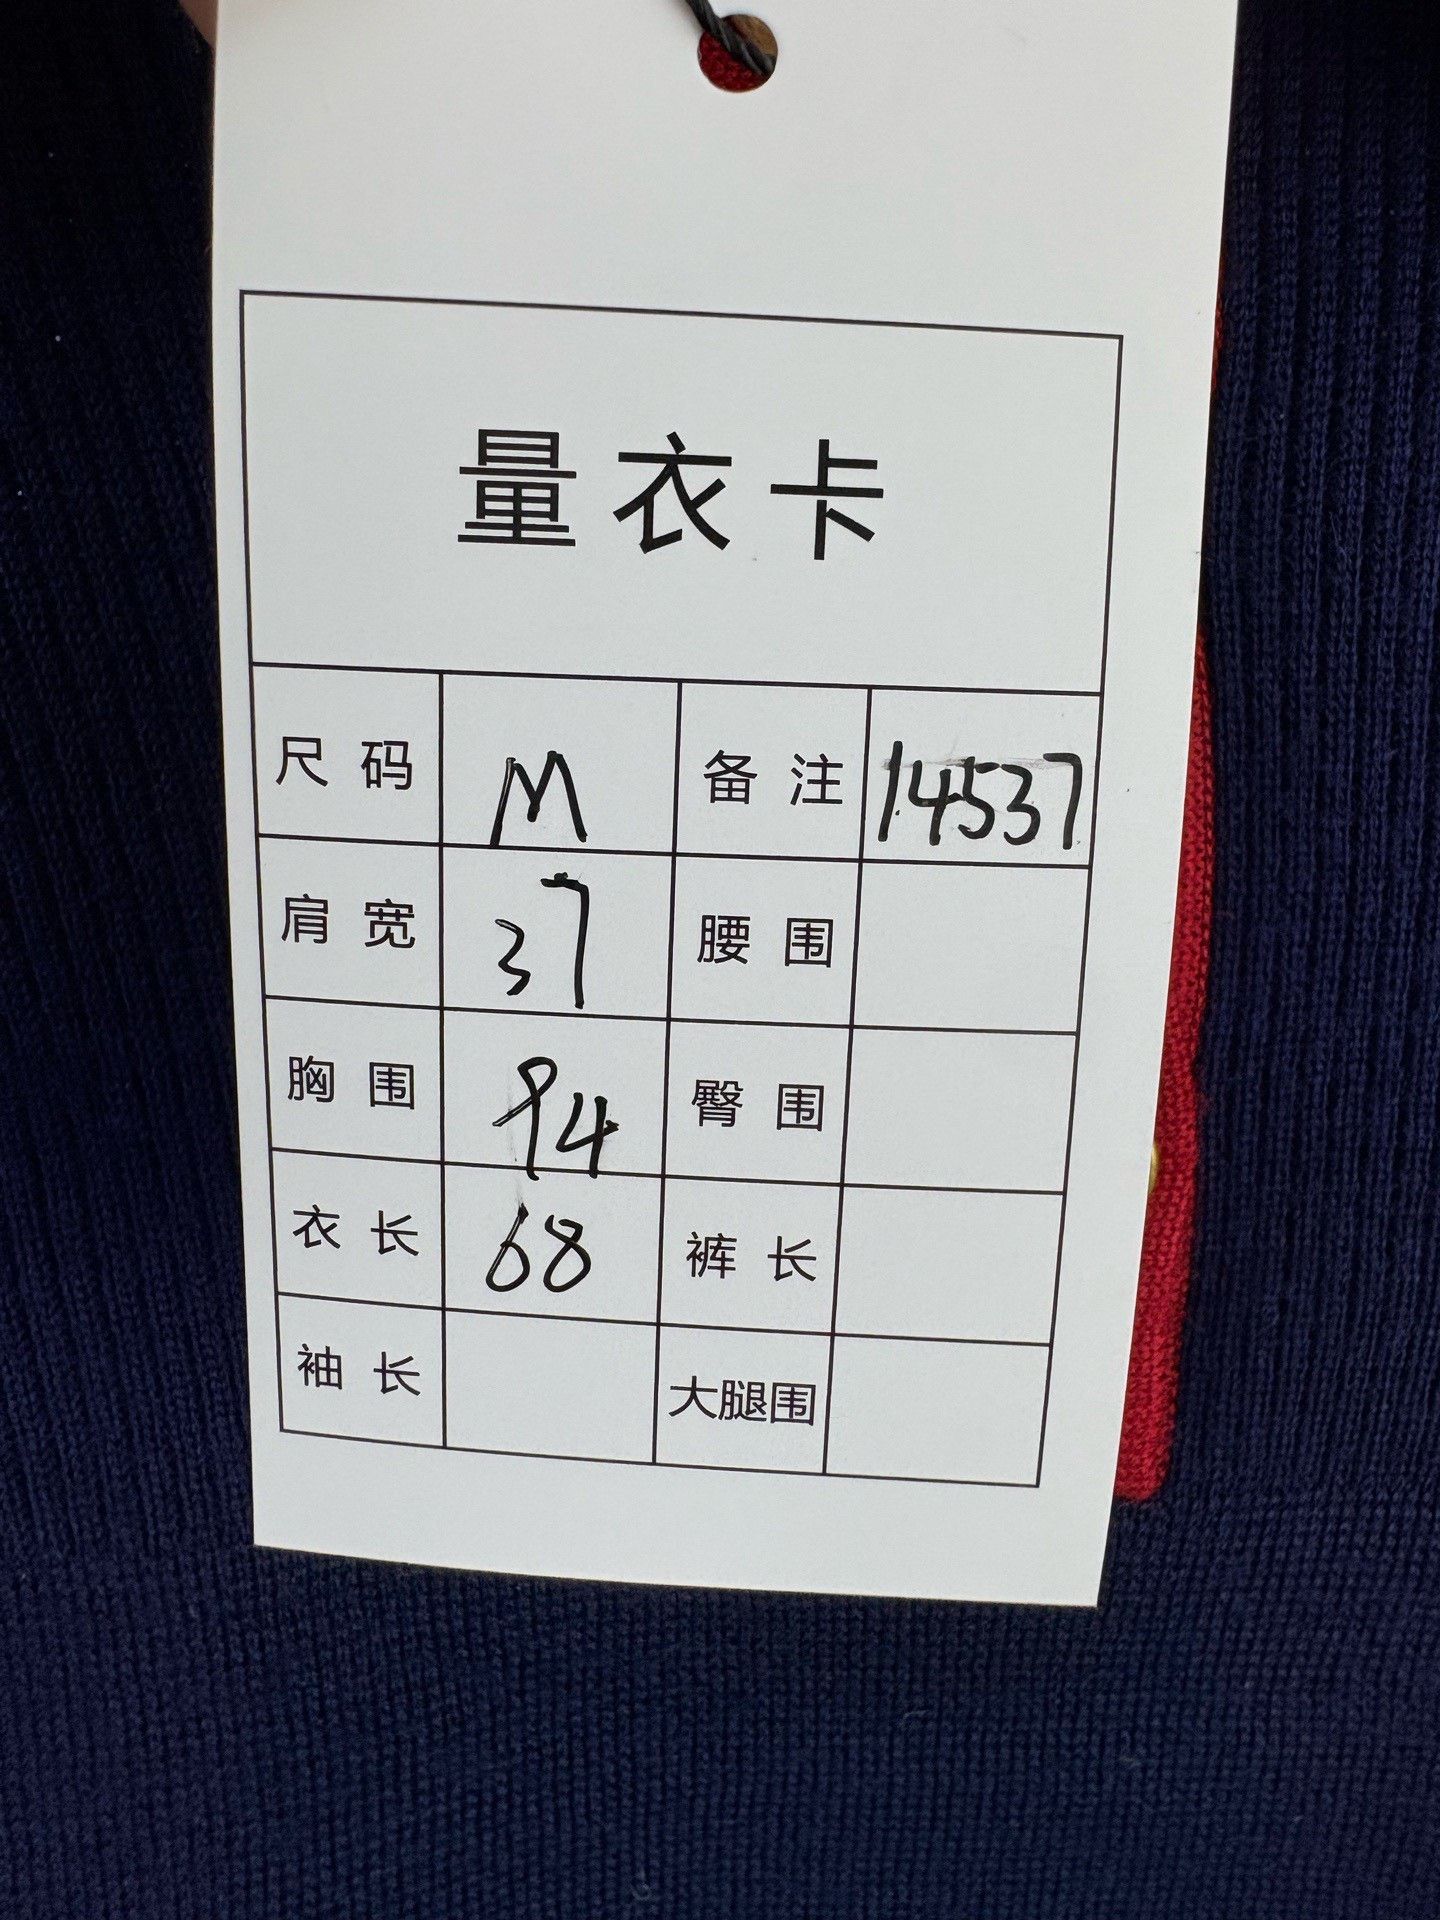 量衣卡
尺码 M 备注 14537
肩宽 37 腰围
胸围 94 臀围
衣长 68 裤长
袖长 大腿围